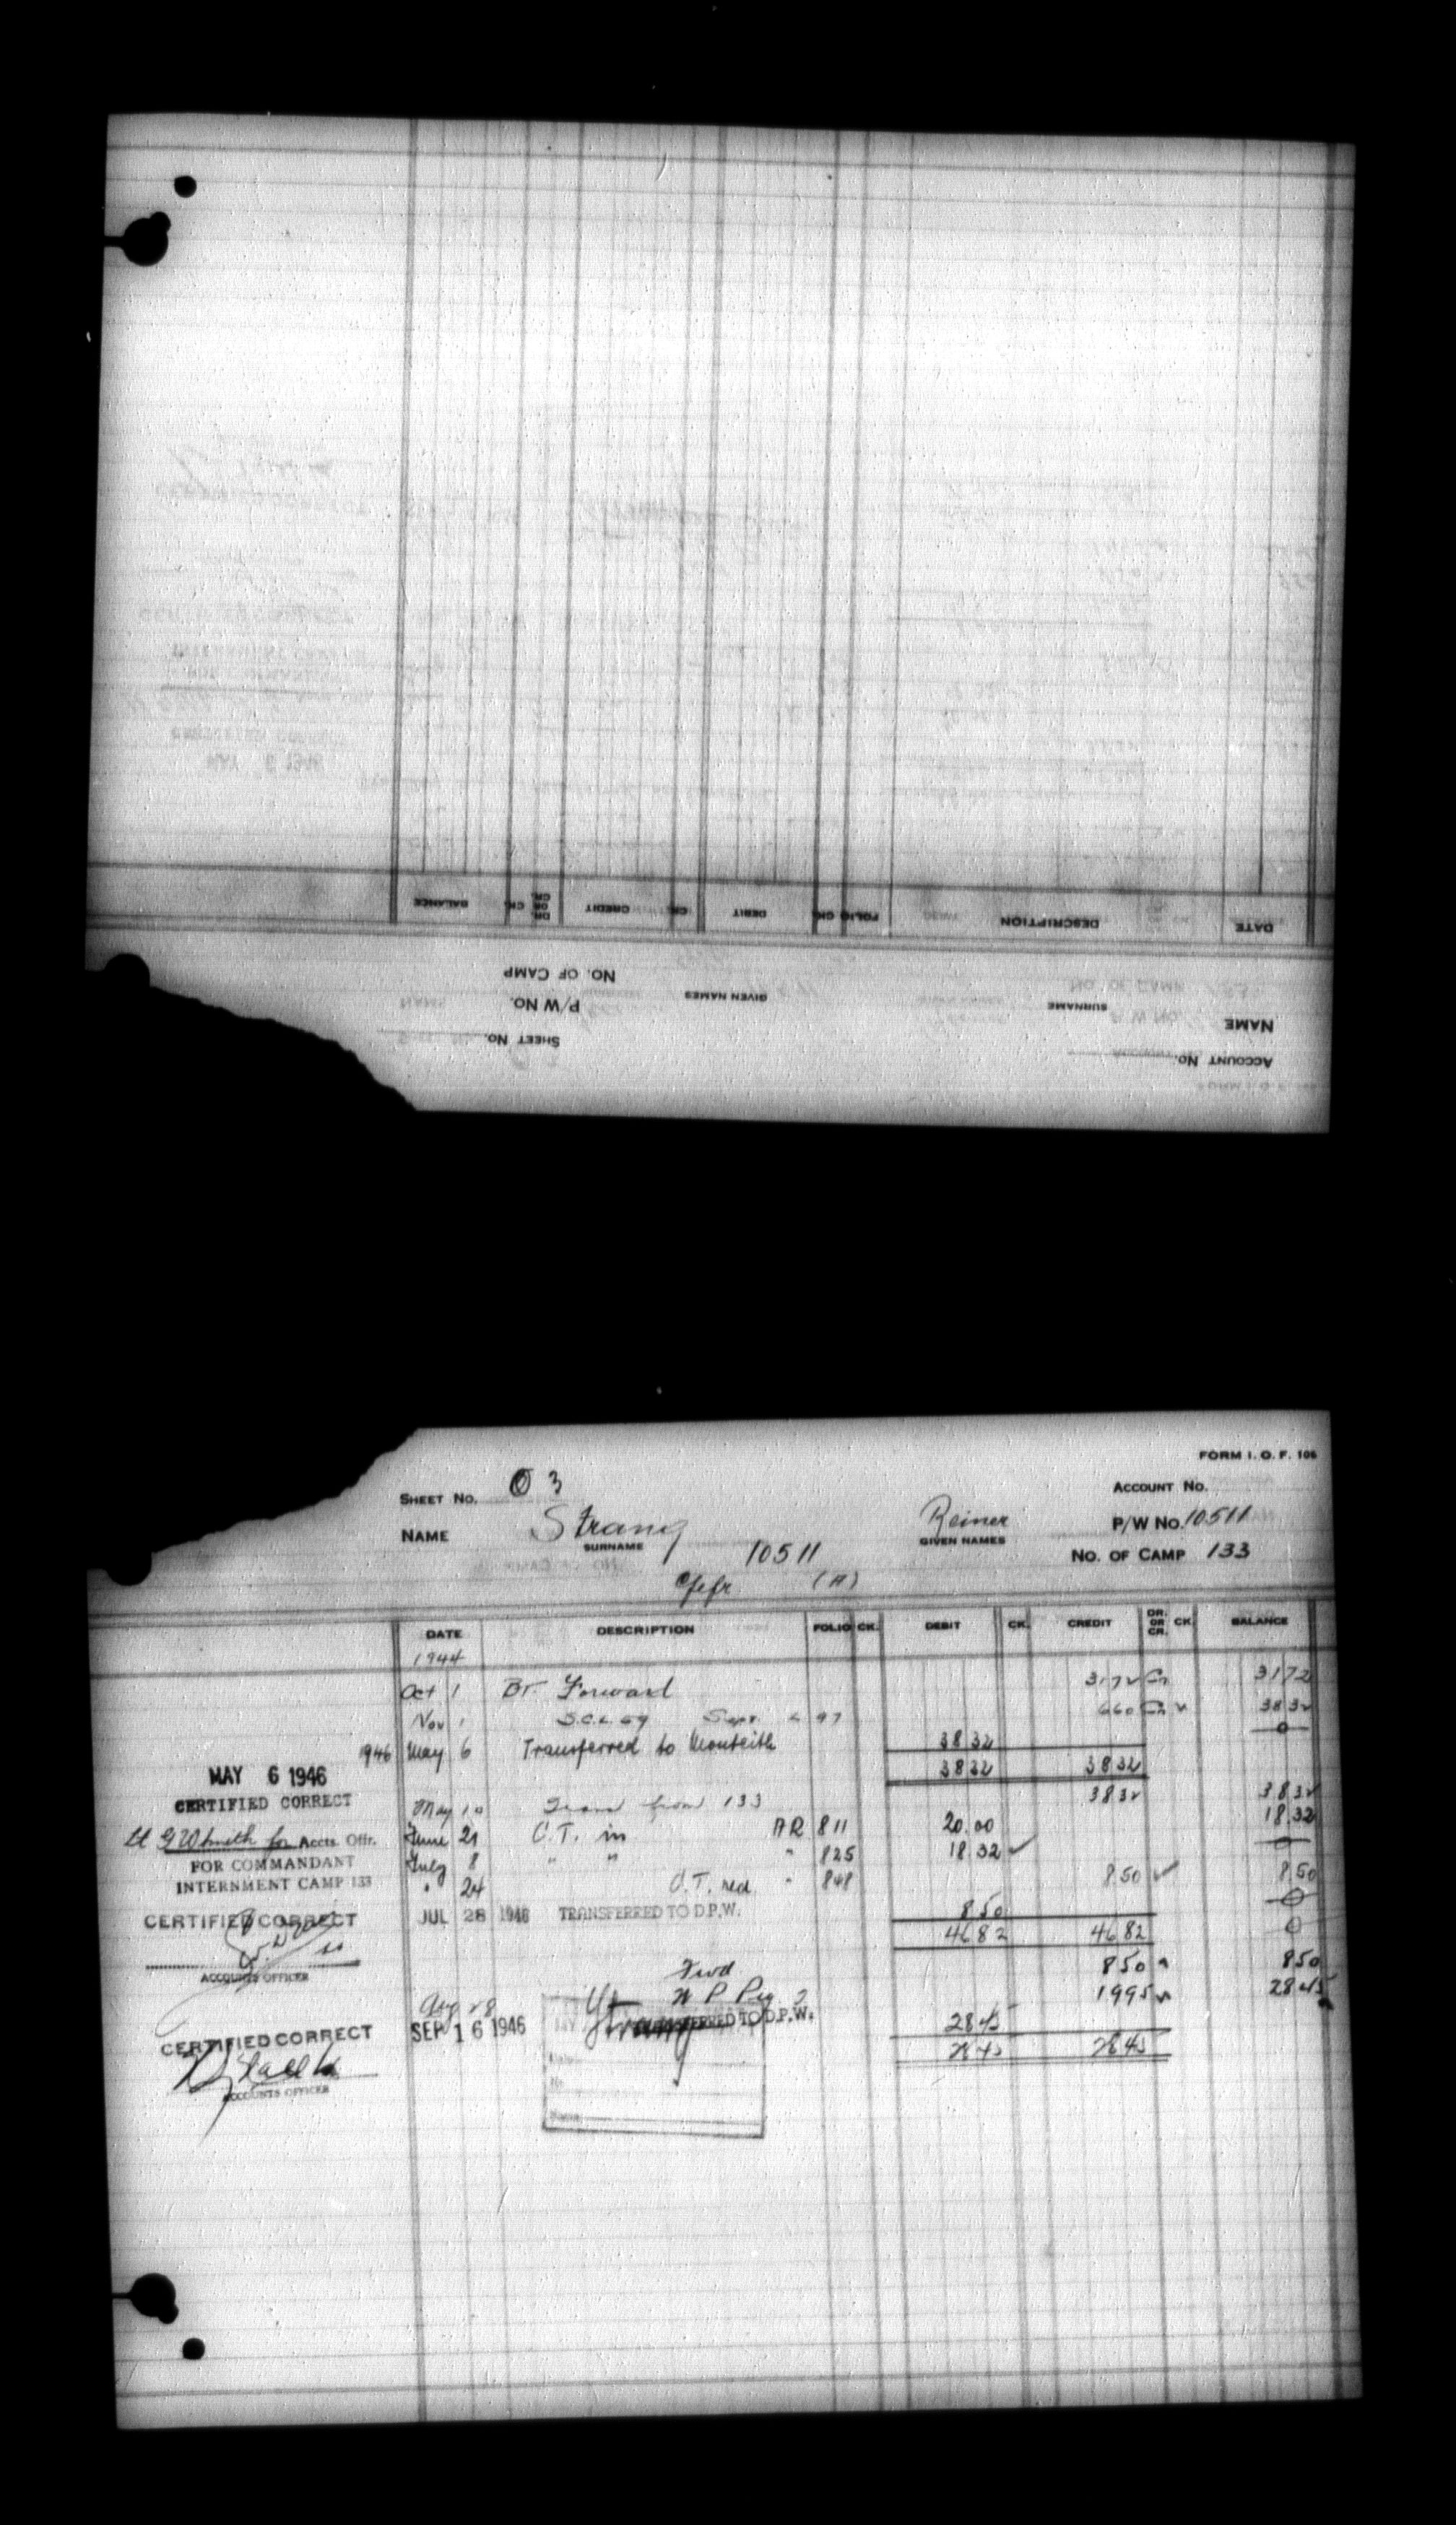 ACCOUNT No.
SHEET No.
NAME
SURNAME
GIVEN NAMES
P/W No.
NO. OF CAMP
DATE DESCRIPTION FOLIO CK. DEBIT CK. CREDIT DR. OR CR. CK. BALANCE
FORM I. O. F. 106
SHEET No. 3
ACCOUNT No.
NAME Strang Reiner P/W No. 10511
SURNAME 10511 GIVEN NAMES NO. OF CAMP 133
(A)
DATE DESCRIPTION FOLIO CK. DEBIT CK. CREDIT DR. OR CR. CK. BALANCE
1944
Oct 1 Br. Forward 31 72 Cr 31 72
Nov 1 Sept. 6 60 Cr 38 32
1946 May 6 Transferred to Monteith 38 32 0
38 32 38 32
MAY 6 1946
CERTIFIED CORRECT
May 10 Trans from 133 38 32 38 32
Lt for Accts. Offr.
June 21 O.T. in AR 811 20.00 18.32
FOR COMMANDANT
July 8 " " " 825 18 32 0
INTERNMENT CAMP 133
" 24 O.T. red. " 848 8.50 8.50
CERTIFIED CORRECT
JUL 28 1946 TRANSFERRED TO D.P.W. 8 50 0
46 82 46 82 0
ACCOUNTS OFFICER
Fwd 8 50 8 50
Aug 28 19 95 28 45
CERTIFIED CORRECT
SEP 16 1946 Strang TRANSFERRED TO D.P.W. 28 45
28 45 28 45
ACCOUNTS OFFICER